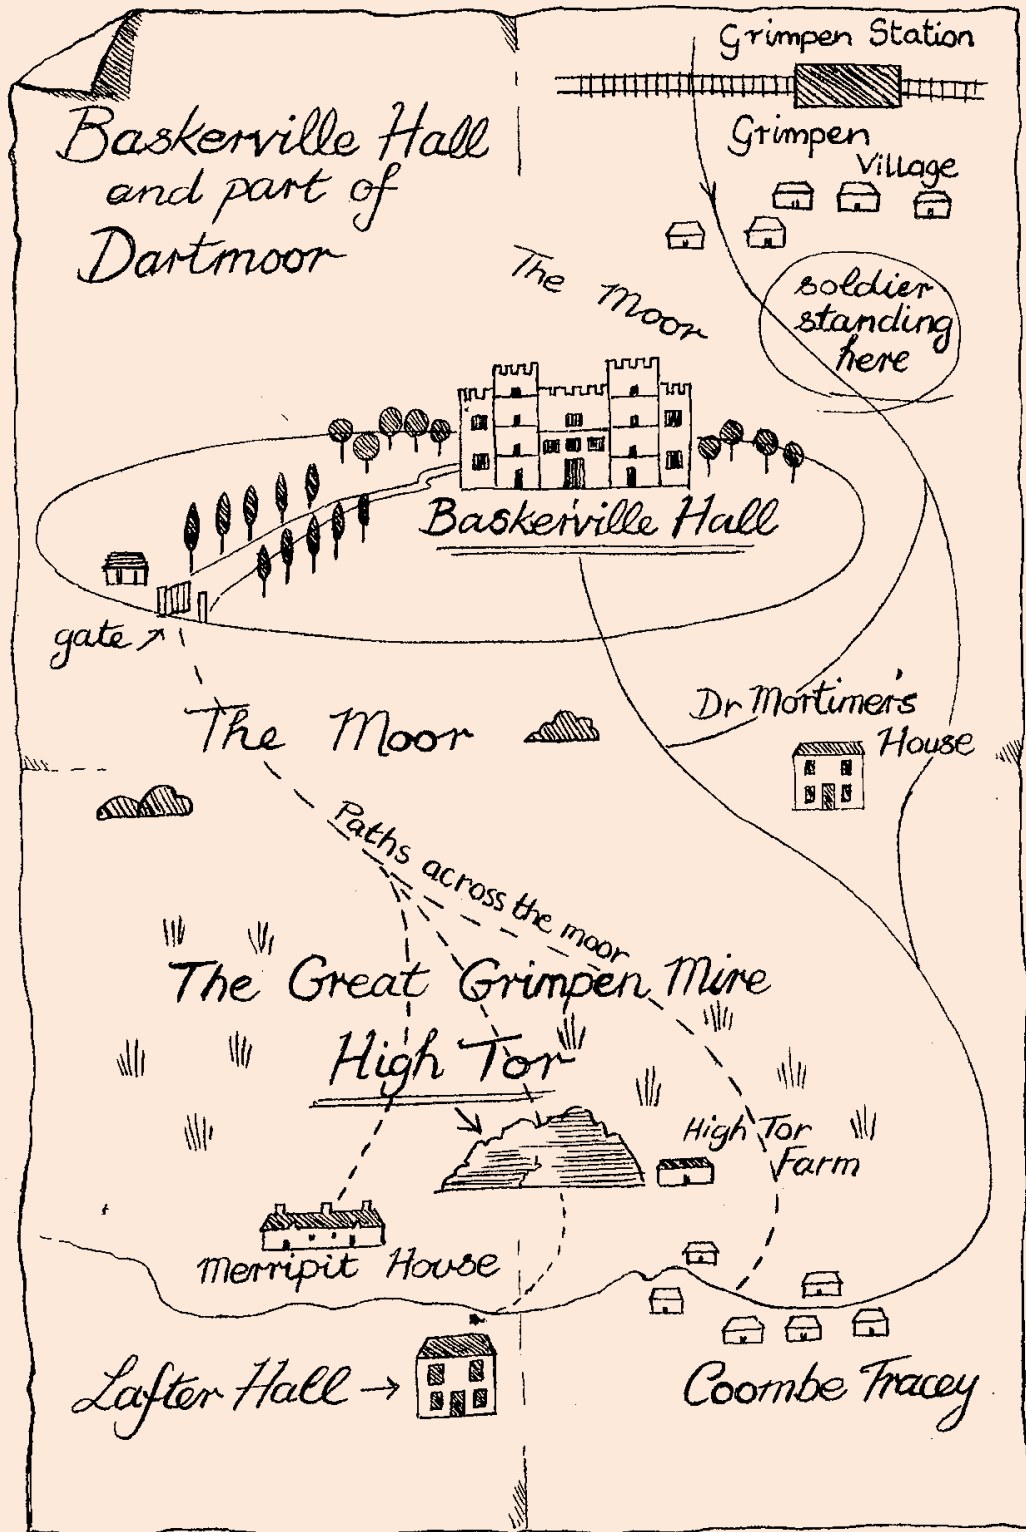 Grimpen Station
Baskerville Hall
and part of
Dartmoor
Grimpen
Village
The Moor
soldier
standing
here
Baskerville Hall
gate
The Moor
Dr Mortimer's
House
Paths across the moor
The Great Grimpen Mire
High Tor
High Tor
Farm
Merripit House
Lafter Hall
Coombe Tracey